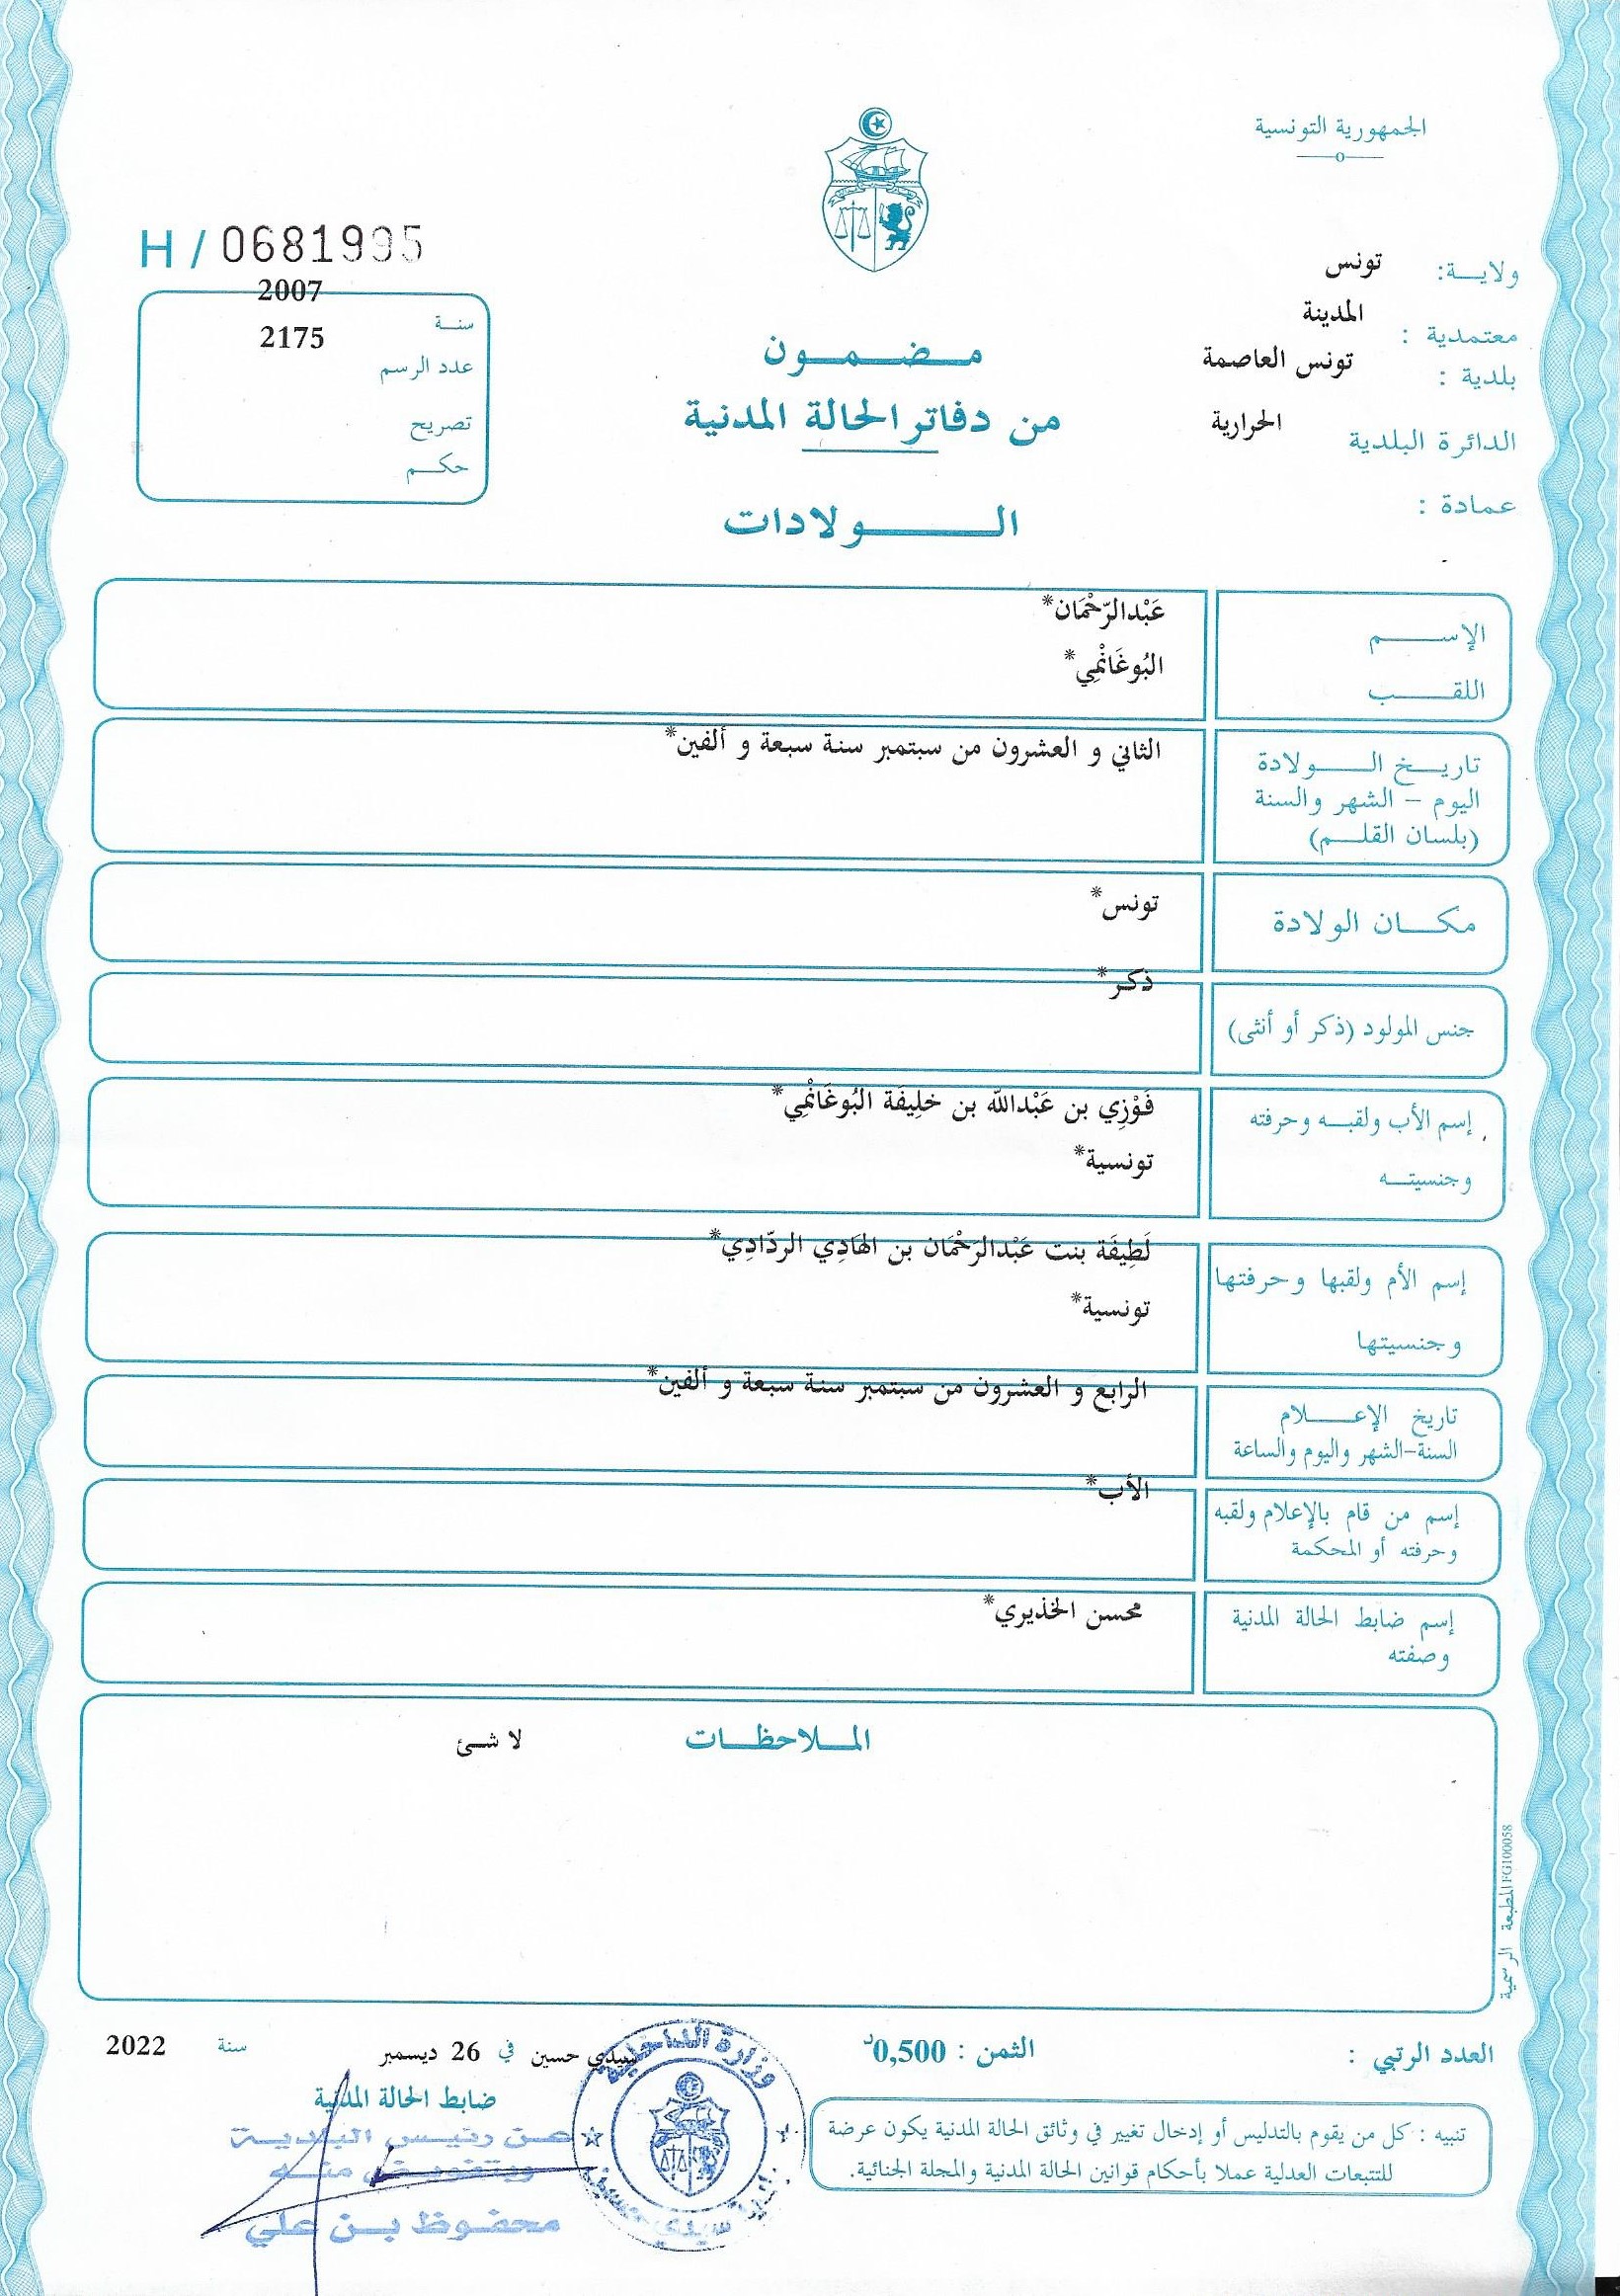 الجمهورية التونسية
ولايـــة: تونس
معتمدية : المدينة
بلدية : تونس العاصمة
الدائرة البلدية الحرارية
عمادة :
H / 0681995
سنــة 2007
عدد الرسم 2175
تصريح
حكـــم
مـــضـــمـــون
من دفاتر الحالة المدنية
الـــــولادات
الإســـــم عَبْدالرّحْمَان*
اللقـــــب البُوغَانْمِي*
تاريـــخ الـــــولادة الثاني و العشرون من سبتمبر سنة سبعة و ألفين*
اليوم - الشهر والسنة
(بلسان القلـــم)
مكـــان الولادة تونس*
جنس المولود (ذكر أو أنثى) ذكر*
إسم الأب ولقبـــه وحرفته فَوْزِي بن عَبْدالله بن خلِيفَة البُوغَانْمِي*
وجنسيتـــه تونسية*
إسم الأم ولقبها وحرفتها لَطِيفَة بنت عَبْدالرَحْمَان بن الهَادِي الردّادِي*
وجنسيتها تونسية*
تاريخ الإعـــــلام الرابع و العشرون من سبتمبر سنة سبعة و ألفين*
السنة-الشهر واليوم والساعة
إسم من قام بالإعلام ولقبه الأب*
وحرفته أو المحكمة
إسم ضابط الحالة المدنية محسن الخذيري*
وصفته
المـــلاحظـــات لا شئ
المطبعة الرسمية FG100058
العدد الرتبي :
الثمن : 0,500د
سيدي حسين في 26 ديسمبر سنة 2022
ضابط الحالة المدنية
عن رئيس البلدية
وبتفويض منه
محفوظ بن علي
وزارة الداخلية
سيدي حسين
تنبيه : كل من يقوم بالتدليس أو إدخال تغيير في وثائق الحالة المدنية يكون عرضة
للتتبعات العدلية عملا بأحكام قوانين الحالة المدنية والمجلة الجنائية.